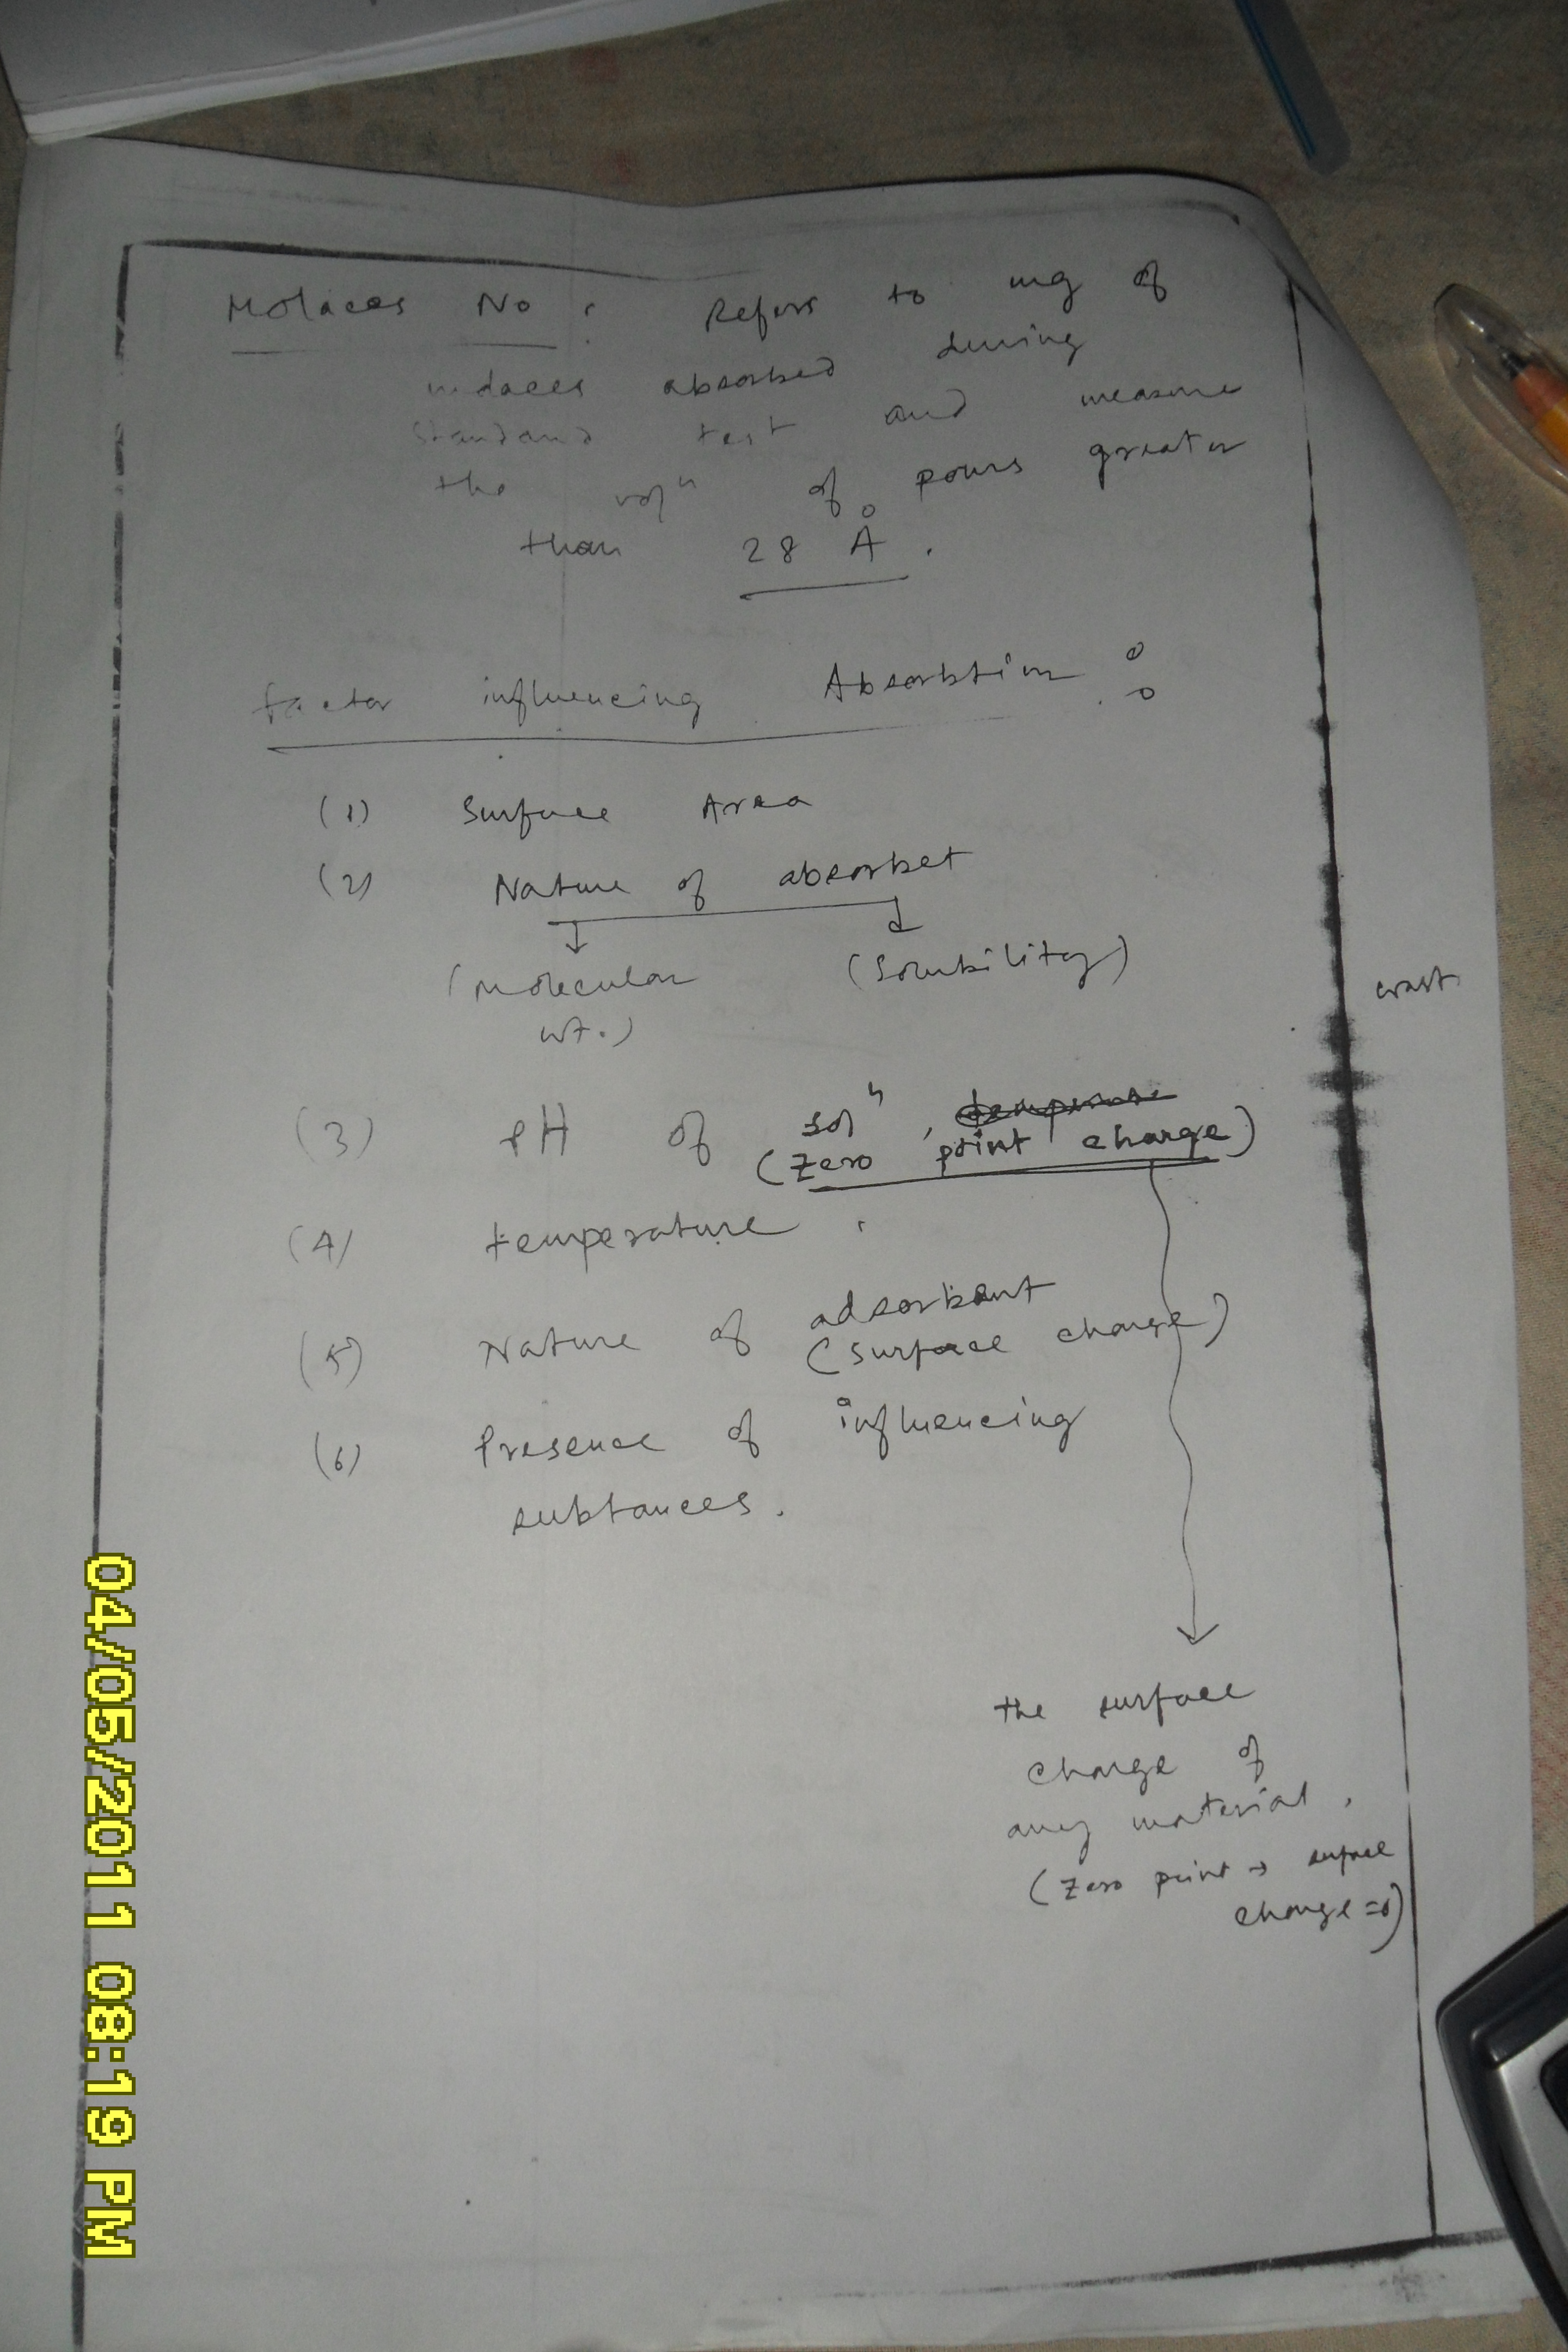 Molaces No : Refers to mg of
molaces absorbed during
standard test and measure
the volⁿ of pours greater
than 28 Å .
factor influencing Absorbtion :
(1) Surface Area
(2) Nature of absorbet
(molecular (Solubility)
wt.)
(3) PH of solⁿ ,
(Zero point charge)
(4) temperature .
(5) Nature of adsorbent
(Surface charge)
(6) Presence of influencing
subtances .
the surface
charge of
any material .
(Zero point → surface
charge =0)
04/05/2011 08:19 PM